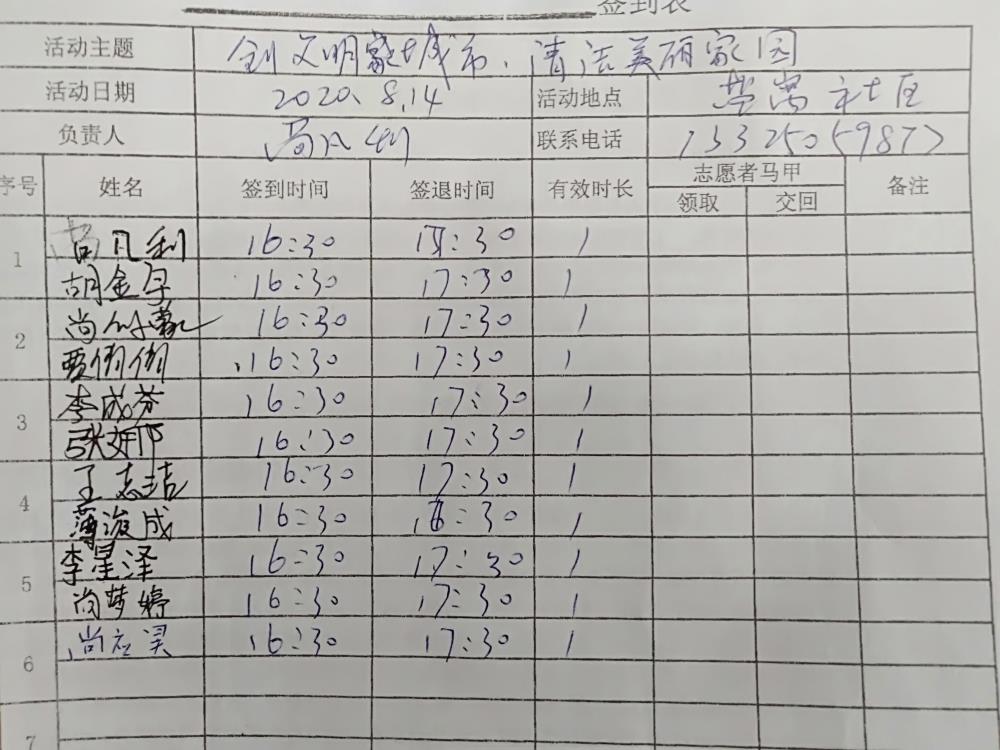 签到表
活动主题 创文明 城市、清洁美丽家园
活动日期 2020.8.14 活动地点 社区
负责人 尚凡利 联系电话 13325059877
序号 姓名 签到时间 签退时间 有效时长 志愿者马甲 备注
领取 交回
1 尚凡利 16:30 17:30 1
胡金 16:30 17:30 1
2 尚 16:30 17:30 1
贾倩倩 16:30 17:30 1
3 李成芬 16:30 17:30 1
张 16:30 17:30 1
4 王志洁 16:30 17:30 1
薄浚成 16:30 :30 1
5 李星泽 16:30 17:30 1
尚梦婷 16:30 17:30 1
6 尚 昊 16:30 17:30 1
7